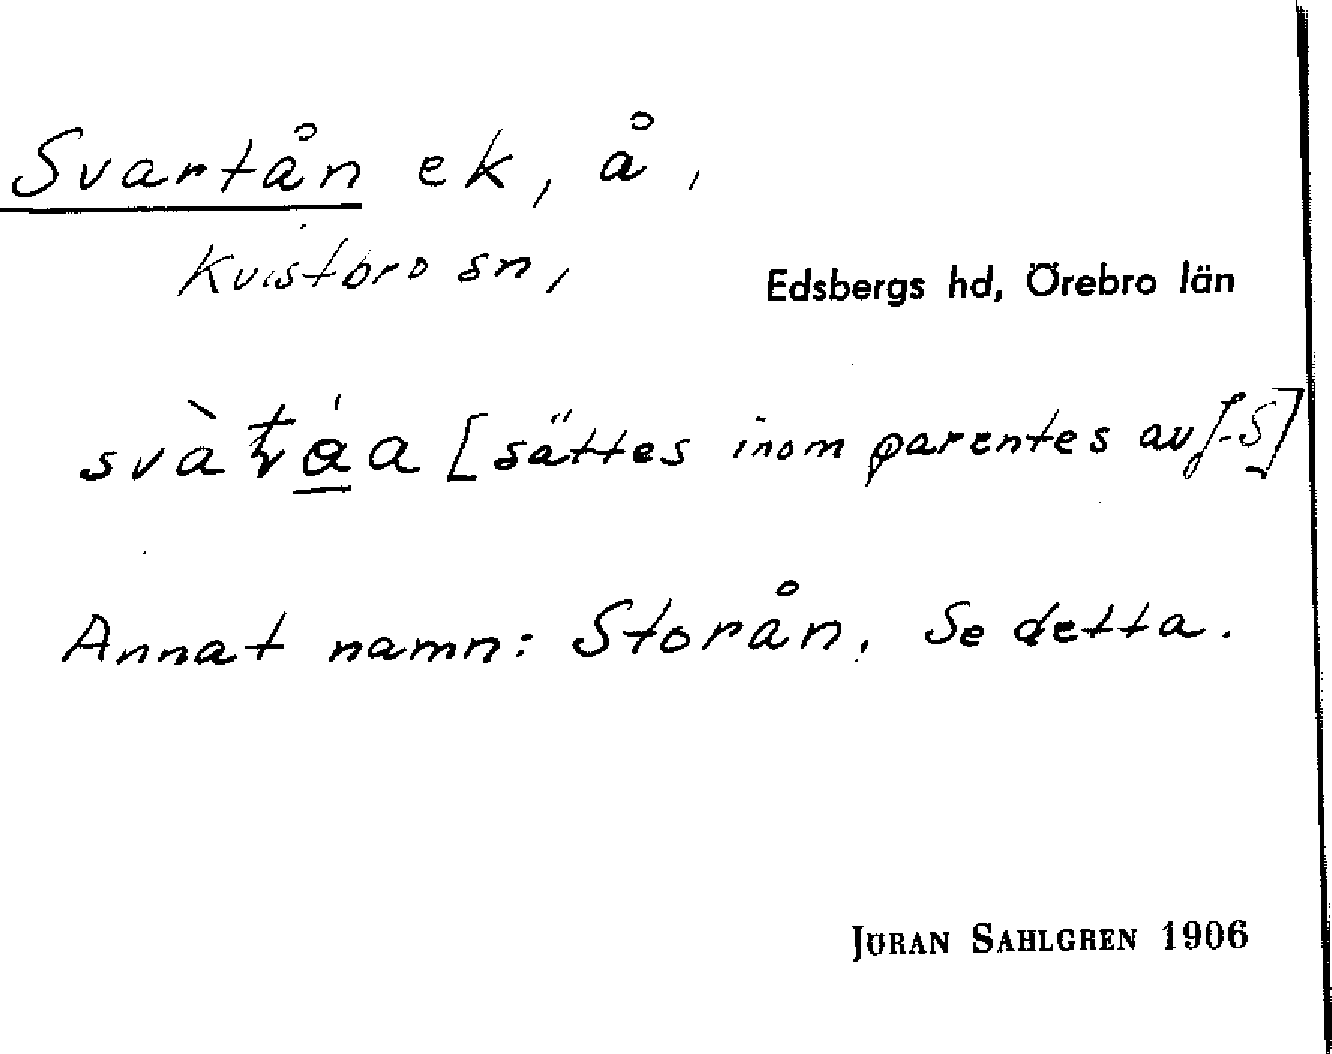 Svartån ek, å,
Kvistbro sn, Edsbergs hd, Örebro län
[sättes inom parentes av J-S]
Annat namn: Storån. Se detta.
JÖRAN SAHLGREN 1906